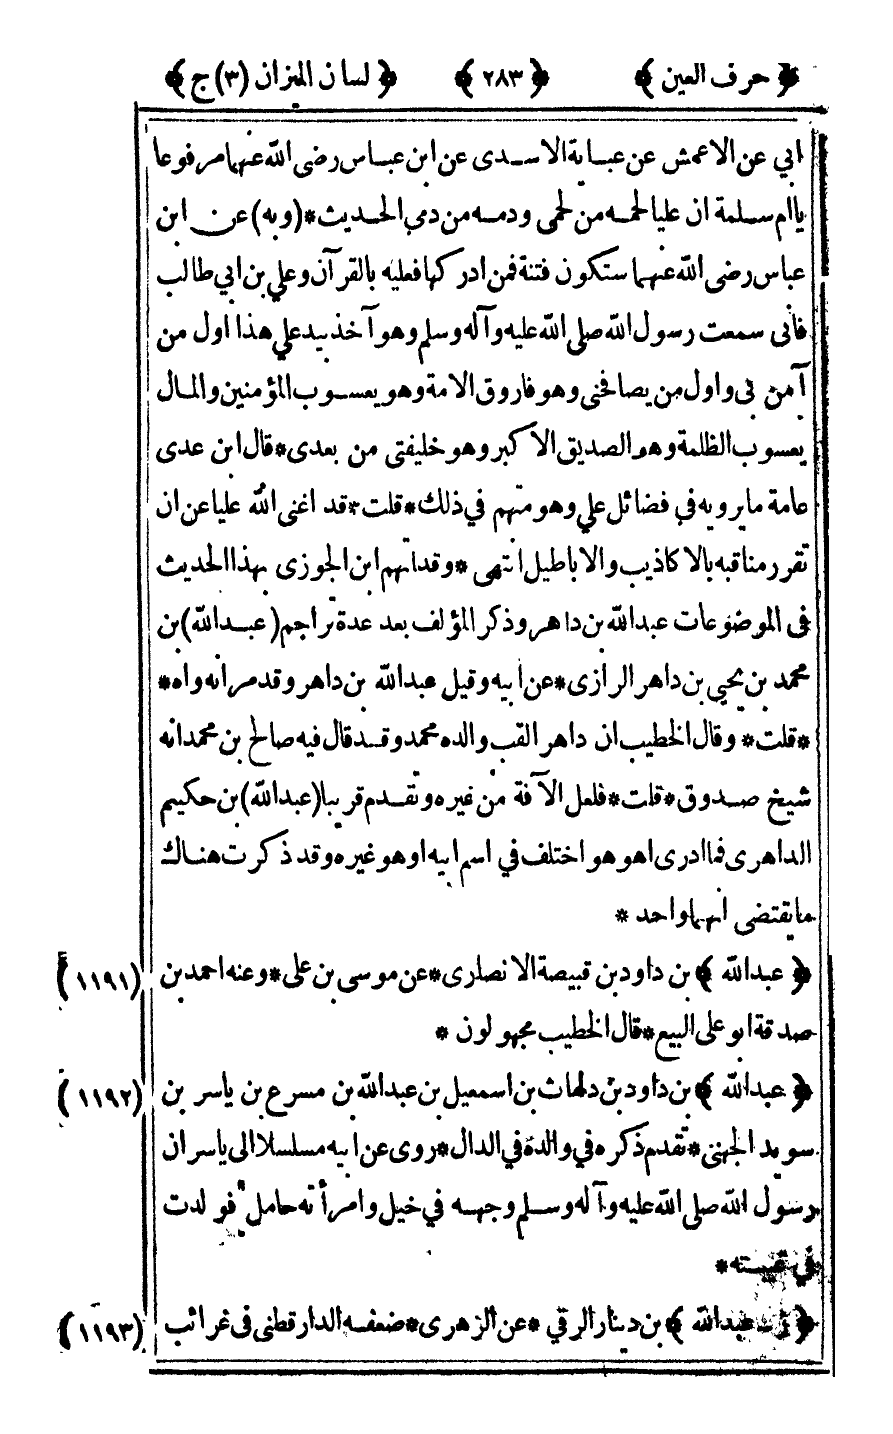 ﴿ حرف العين ﴾ ﴿ ٢٨٣ ﴾ ﴿ لسان الميزان (٣) ج ﴾
ابي عن الاعمش عن عباية الاسدى عن ابن عباس رضى الله عنهما مرفوعا
ياام سلمة ان عليا لحمه من لحمى ودمه من دمى الحديث * (وبه) عن ابن
عباس رضى الله عنهما ستكون فتنة فمن ادركها فعليه بالقرآن وعلي بن ابي طالب
فانى سمعت رسول الله صلى الله عليه وآله وسلم وهو آخذ بيد علي هذا اول من
آمن بى واول من يصافحنى وهو فاروق الامة وهو يعسوب المؤمنين والمال
يعسوب الظلمة وهو الصديق الاكبر وهو خليفتى من بعدى * قال ابن عدى
عامة مايرويه في فضائل علي وهو متهم في ذلك * قلت * قد اغنى الله عليا عن ان
تقرر مناقبه بالاكاذيب والاباطيل انتهى * وقد اتهم ابن الجوزى بهذا الحديث
فى الموضوعات عبدالله بن داهر وذكر المؤلف بعد عدة تراجم (عبدالله) بن
محمد بن يحيى بن داهر الرازى * عن ابيه وقيل عبدالله بن داهر وقد مر انه واه *
* قلت * وقال الخطيب ان داهر القب والده محمد وقد قال فيه صالح بن محمد انه
شيخ صدوق * قلت * فلعل الآفة من غيره وتقدم قريبا (عبدالله) بن حكيم
الداهرى فما ادرى اهو هو اختلف في اسم ابيه او هو غيره وقد ذكرت هناك
مايقتضى انهما واحد *
﴿ عبدالله ﴾ بن داود بن قبيصة الانصارى * عن موسى بن على * وعنه احمد بن (١١٩١)
صدقة ابو على البيع * قال الخطيب مجهولون *
﴿ عبدالله ﴾ بن داود بن دلهاث بن اسمعيل بن عبدالله بن مسرع بن ياسر بن (١١٩٢)
سويد الجهنى * تقدم ذكره في والده في الدال * روى عن ابيه مسلسلا الى ياسر ان
رسول الله صلى الله عليه وآله وسلم وجهه في خيل وامرأته حامل فولدت
في غيبته *
﴿ عبدالله ﴾ بن دينار الرقي * عن الزهرى * ضعفه الدارقطنى فى غرائب (١١٩٣)